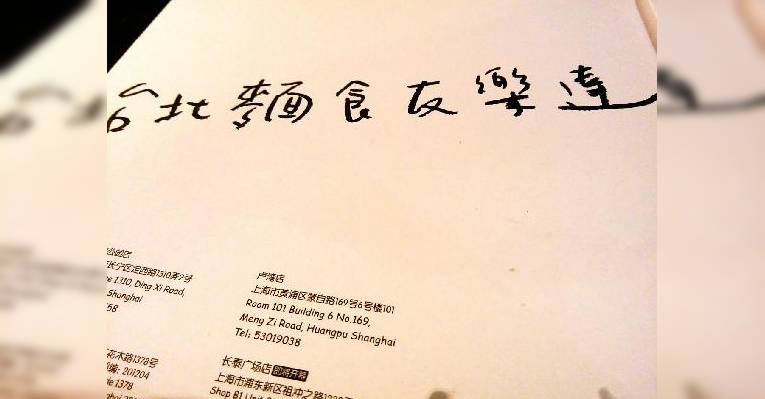 台北麵食友樂達
长宁区定西路1310弄7号
1310, Ding Xi Road,
Shanghai
卢湾店
上海市黄浦区蒙自路169号6号楼101
Room 101 Building 6 No.169,
Meng Zi Road, Huangpu Shanghai
Tel: 53019038
花木路1378号
201204
1378
长泰广场店 即将开幕
上海市浦东新区祖冲之路
Shop B1 Unit